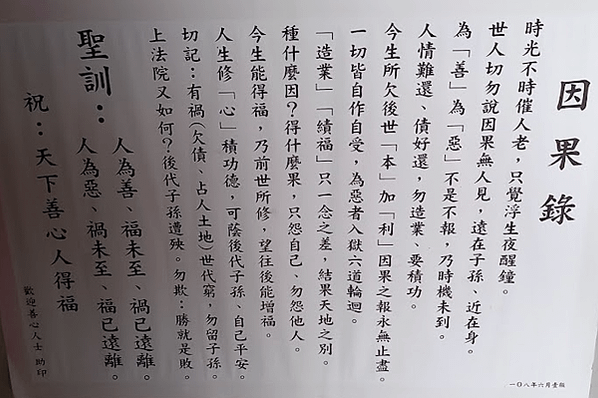 因果錄
時光不時催人老，只覺浮生夜醒鐘。
世人切勿說因果無人見，遠在子孫、近在身。
為「善」為「惡」不是不報，乃時機未到。
人情難還、債好還，勿造業、要積功。
今生所欠後世「本」加「利」因果之報永無止盡。
一切皆自作自受，為惡者入獄六道輪迴。
「造業」「績福」只一念之差，結果天地之別。
種什麼因？得什麼果，只怨自己、勿怨他人。
今生能得福，乃前世所修，望往後能增福。
人生修「心」積功德，可蔭後代子孫、自己平安。
切記：有禍(欠債、占人土地)世代窮，勿留子孫。
上法院又如何？後代子孫遭殃。勿欺：勝就是敗。
聖訓：
人為善、福未至、禍已遠離。
人為惡、禍未至、福已遠離。
祝：天下善心人得福
歡迎善心人士 助印
一０八年六月